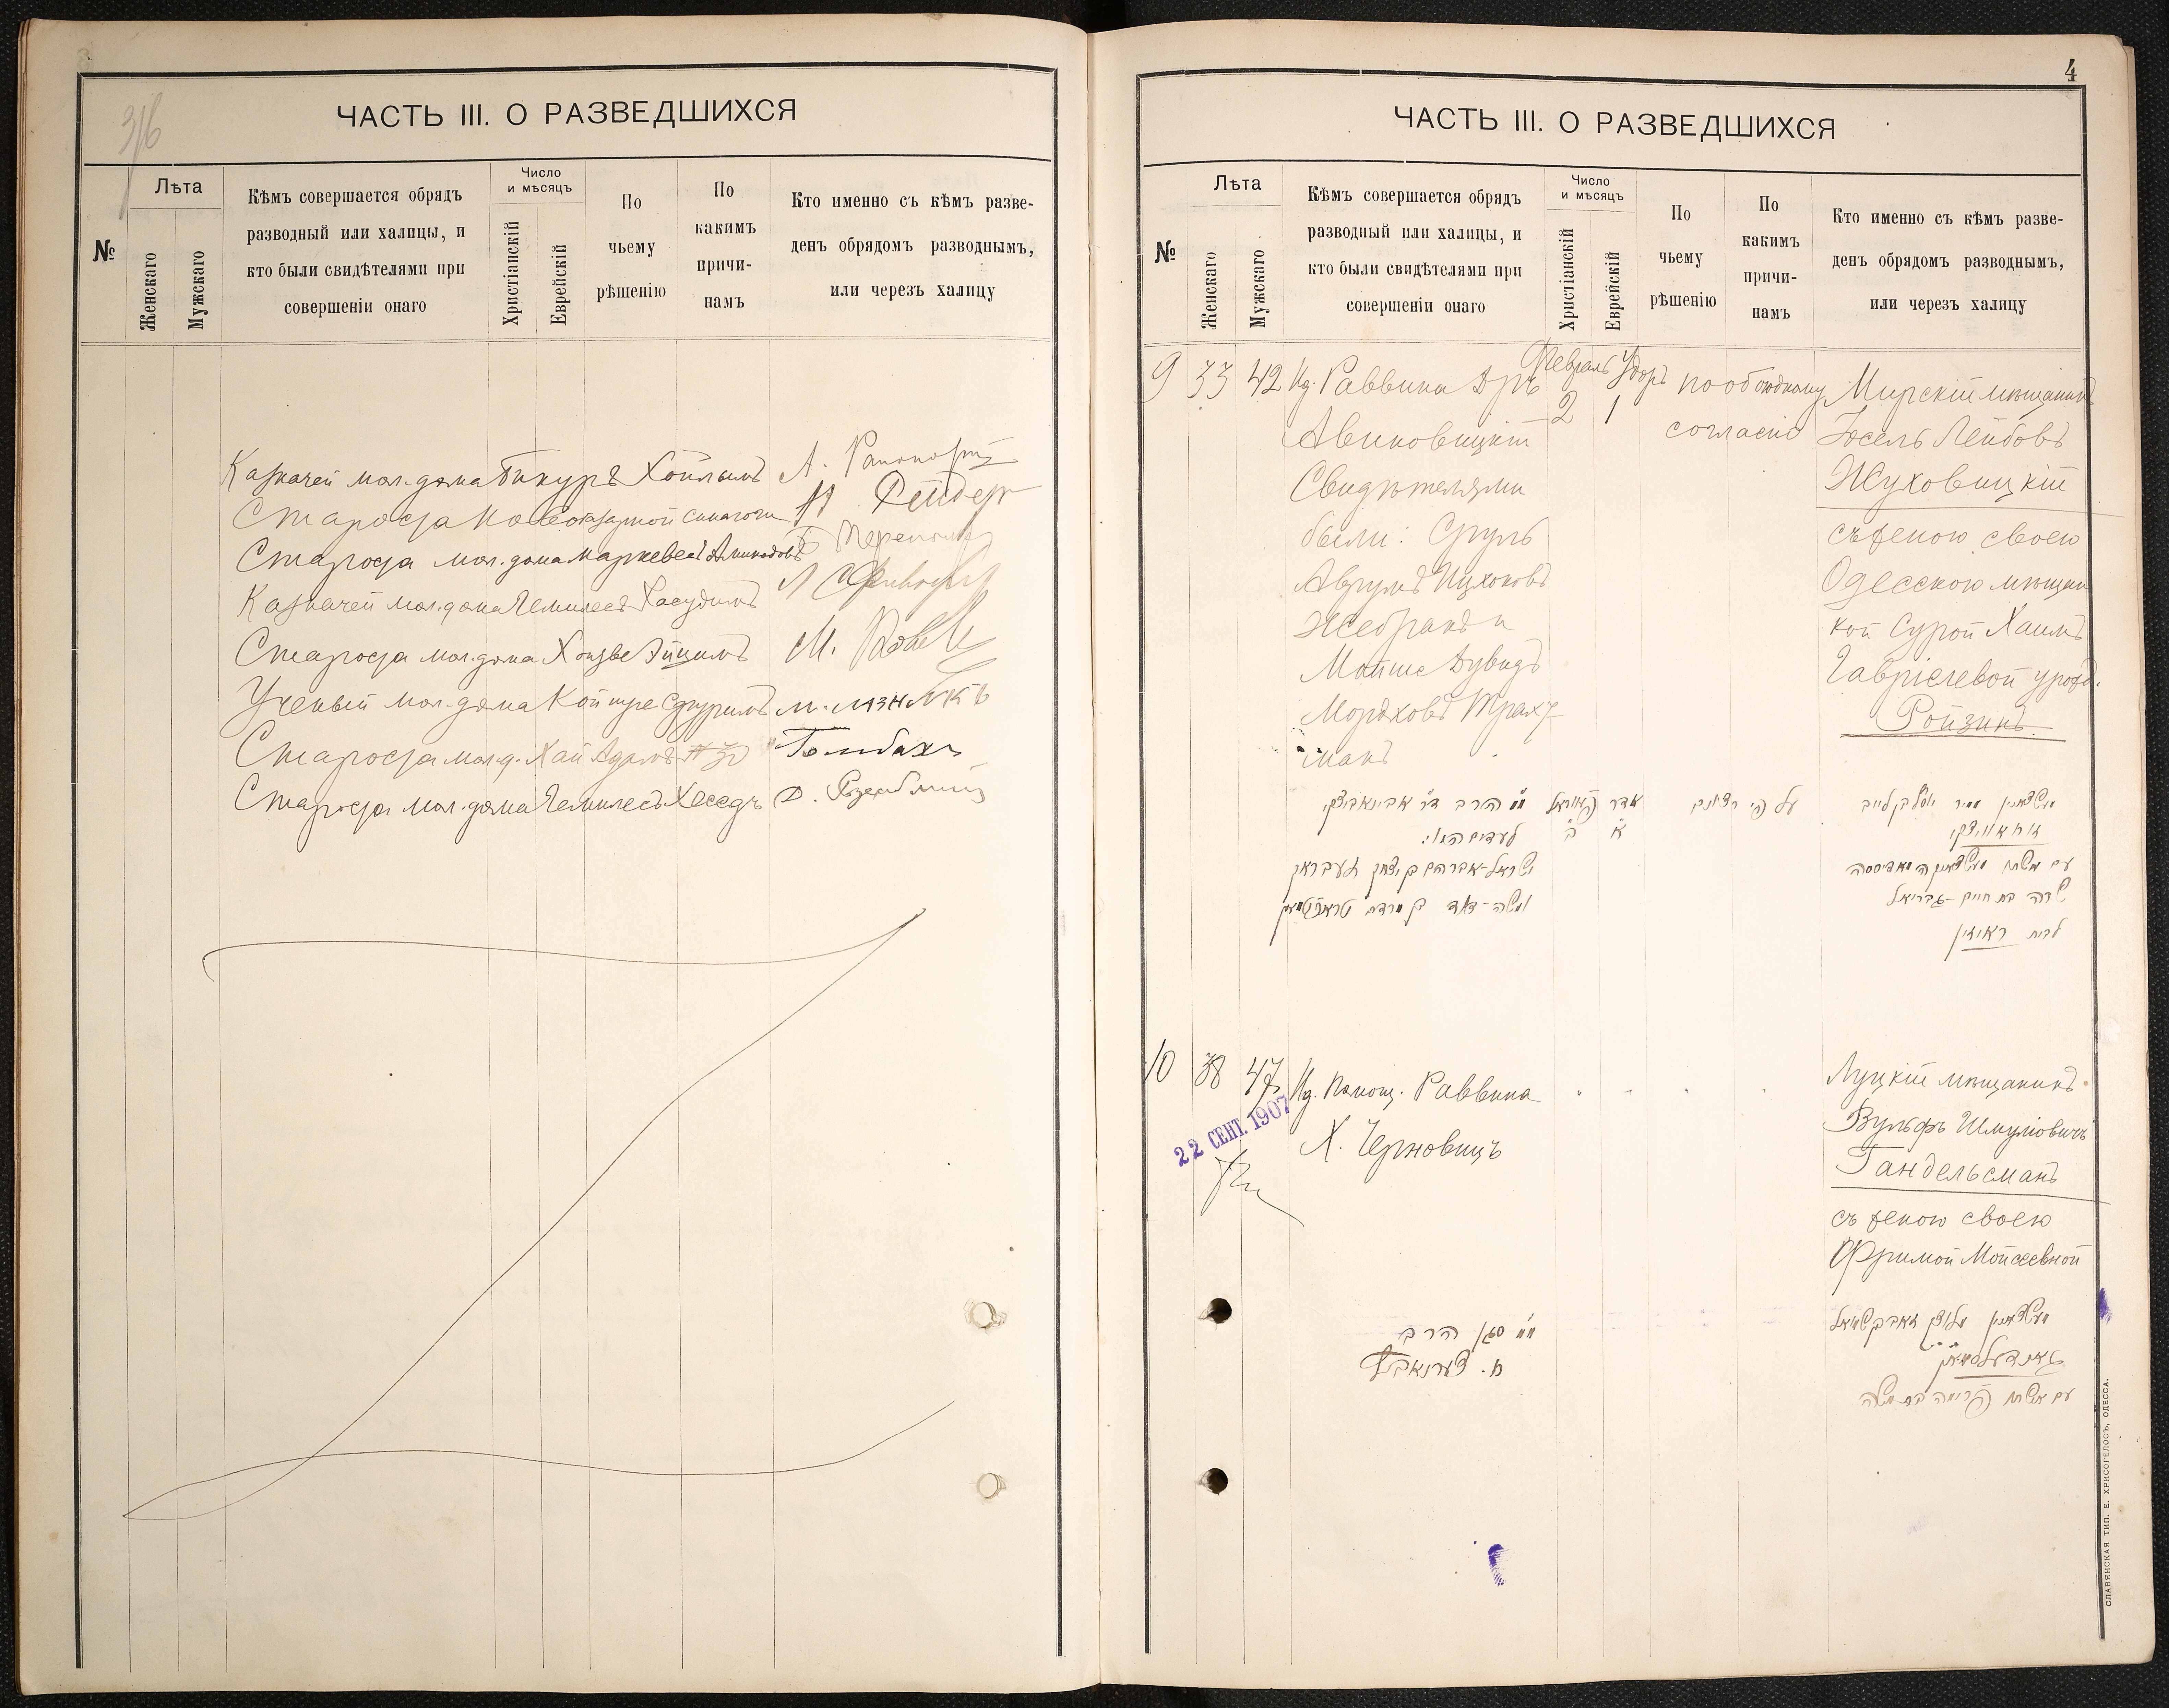 316
ЧАСТЬ III. О РАЗВЕДШИХСЯ
№
Лѣта
Женскаго
Мужскаго
Кѣмъ совершается обрядъ
разводный или халицы, и
кто были свидѣтелями при
совершеніи онаго
Число
и мѣсяцъ
Христіанскій
Еврейскій
По
чьему
рѣшенію
По
какимъ
причи-
намъ
Кто именно съ кѣмъ разве-
денъ обрядомъ разводнымъ,
или черезъ халицу
Казначей мол. дома Бикуръ Хойлимъ А. Рапопортъ
Староста Новобазарной синагоги
Староста мол. дома
Казначей мол. дома Гемилесъ Хасудимъ
Староста мол. дома М.
Ученый мол. дома М. Мазникъ
Староста мол. д. Хай Адамъ # 30
Староста мол. дома Гемилесъ Хеседъ Д.
4
ЧАСТЬ III. О РАЗВЕДШИХСЯ
№
Лѣта
Женскаго
Мужскаго
Кѣмъ совершается обрядъ
разводный или халицы, и
кто были свидѣтелями при
совершеніи онаго
Число
и мѣсяцъ
Христіанскій
Еврейскій
По
чьему
рѣшенію
По
какимъ
причи-
намъ
Кто именно съ кѣмъ разве-
денъ обрядомъ разводнымъ,
или черезъ халицу
9 33 42 Ид. Раввина Дръ
Авиновицкій
Свидѣтелями
были: Сруль
Аврумъ Ицхоковъ
Жебракъ и
Мойше Дувидъ
Мордковъ Трахт-
манъ
Февраль
2
Удоръ
1
по обоюдному
согласію
Мирскій мѣщанинъ
Іосель Лейбовъ
Жуховицкій
съ женою своею
Одесскою мѣщан
кой Сурой Хаимъ
Гавріелевой урожд.
Ройзинъ
הרב דר אבינאוויצקי
לעדים היו:
ישראל-אברהם בן יצחק זעבראק
משה-דוד בן מרדכי טראכטמאן
פעווראל
ב
אדר
א
על פי רצונם
יוסל בן לייב
זוחאוויצקי
עם אשתו
שרה בת חיים-גבריאל
לבית ראיזין
10 38 47 Ид. Помощ. Раввина
Х. Черновицъ
22 СЕНТ. 1907
Луцкій мѣщанинъ
Вульфъ Шмуліовичъ
Гандельсманъ
съ женою своею
Фримой Мойсеевной
סגן הרב
ח. צערנאביץ
גאנדעלסמאן
עם אשתו פרימה בת משה
СЛАВЯНСКАЯ ТИП. Е. ХРИСОГЕЛОСЪ, ОДЕССА.